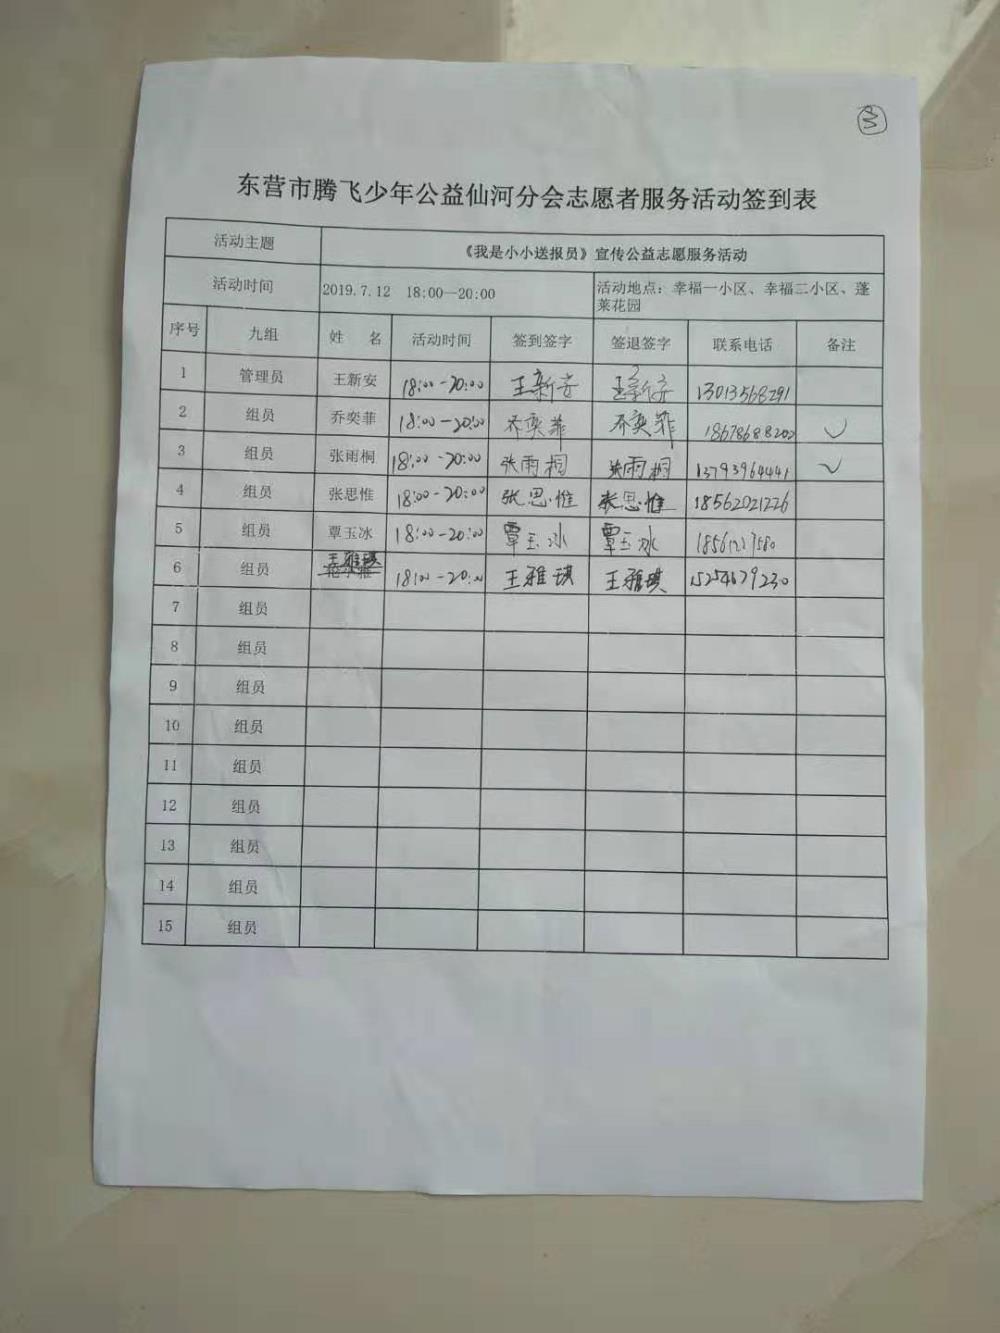 东营市腾飞少年公益仙河分会志愿者服务活动签到表
活动主题 《我是小小送报员》宣传公益志愿服务活动
活动时间 2019.7.12 18:00—20:00 活动地点：幸福一小区、幸福二小区、蓬
莱花园
序号 九组 姓 名 活动时间 签到签字 签退签字 联系电话 备注
1 管理员 王新安 18:00-20:00 王新安 王新安 13013568291
2 组员 乔奕菲 18:00-20:00 乔奕菲 乔奕菲 18678688202 ✓
3 组员 张雨桐 18:00-20:00 张雨桐 张雨桐 13793964441 ✓
4 组员 张思惟 18:00-20:00 张思惟 张思惟 18562021226
5 组员 覃玉冰 18:00-20:00 覃玉冰 覃玉冰
6 组员 王雅琪 18:00-20:00 王雅琪 王雅琪 15254679230
7 组员
8 组员
9 组员
10 组员
11 组员
12 组员
13 组员
14 组员
15 组员